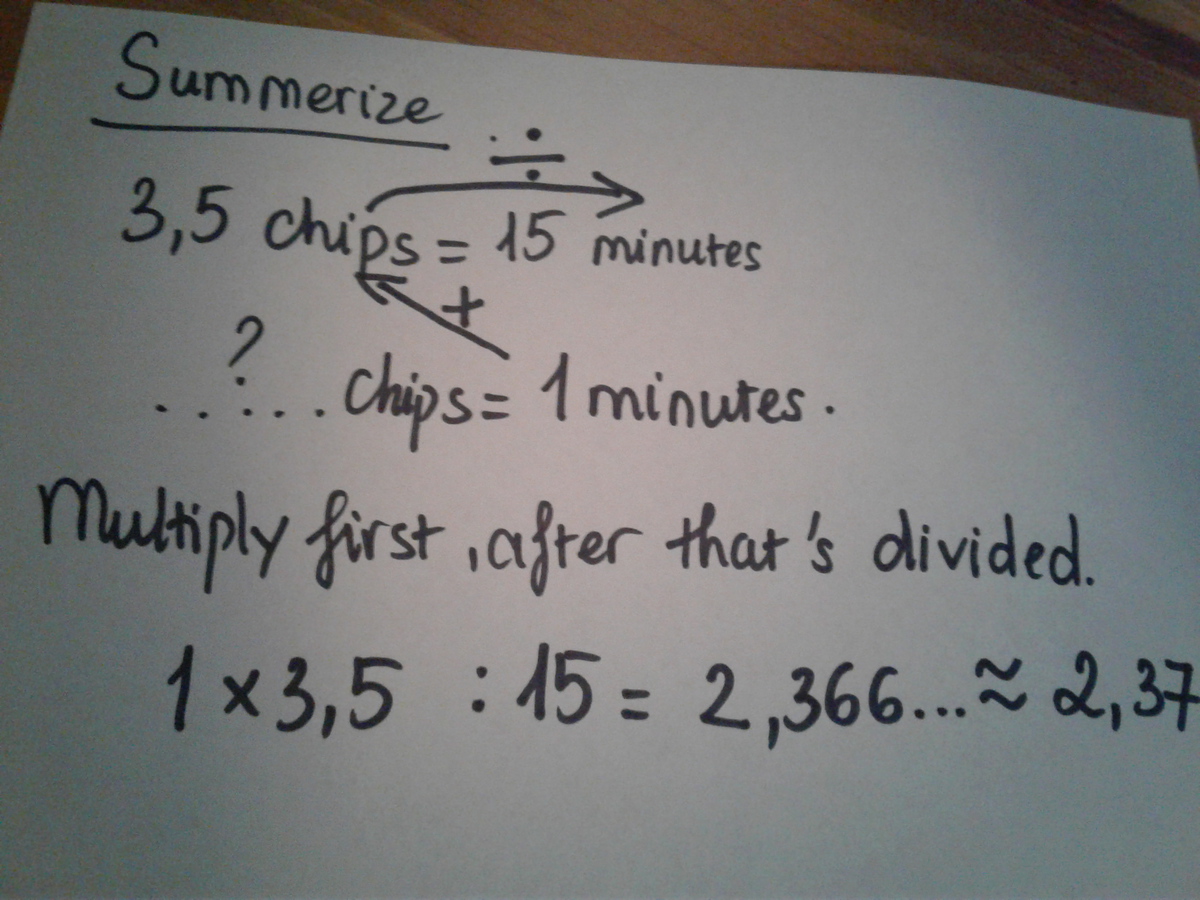 Summerize
÷
3,5 chips = 15 minutes
+
?
..... chips = 1 minutes.
Multiply first, after that's divided.
1 × 3,5 : 15 = 2,366... ≈ 2,37